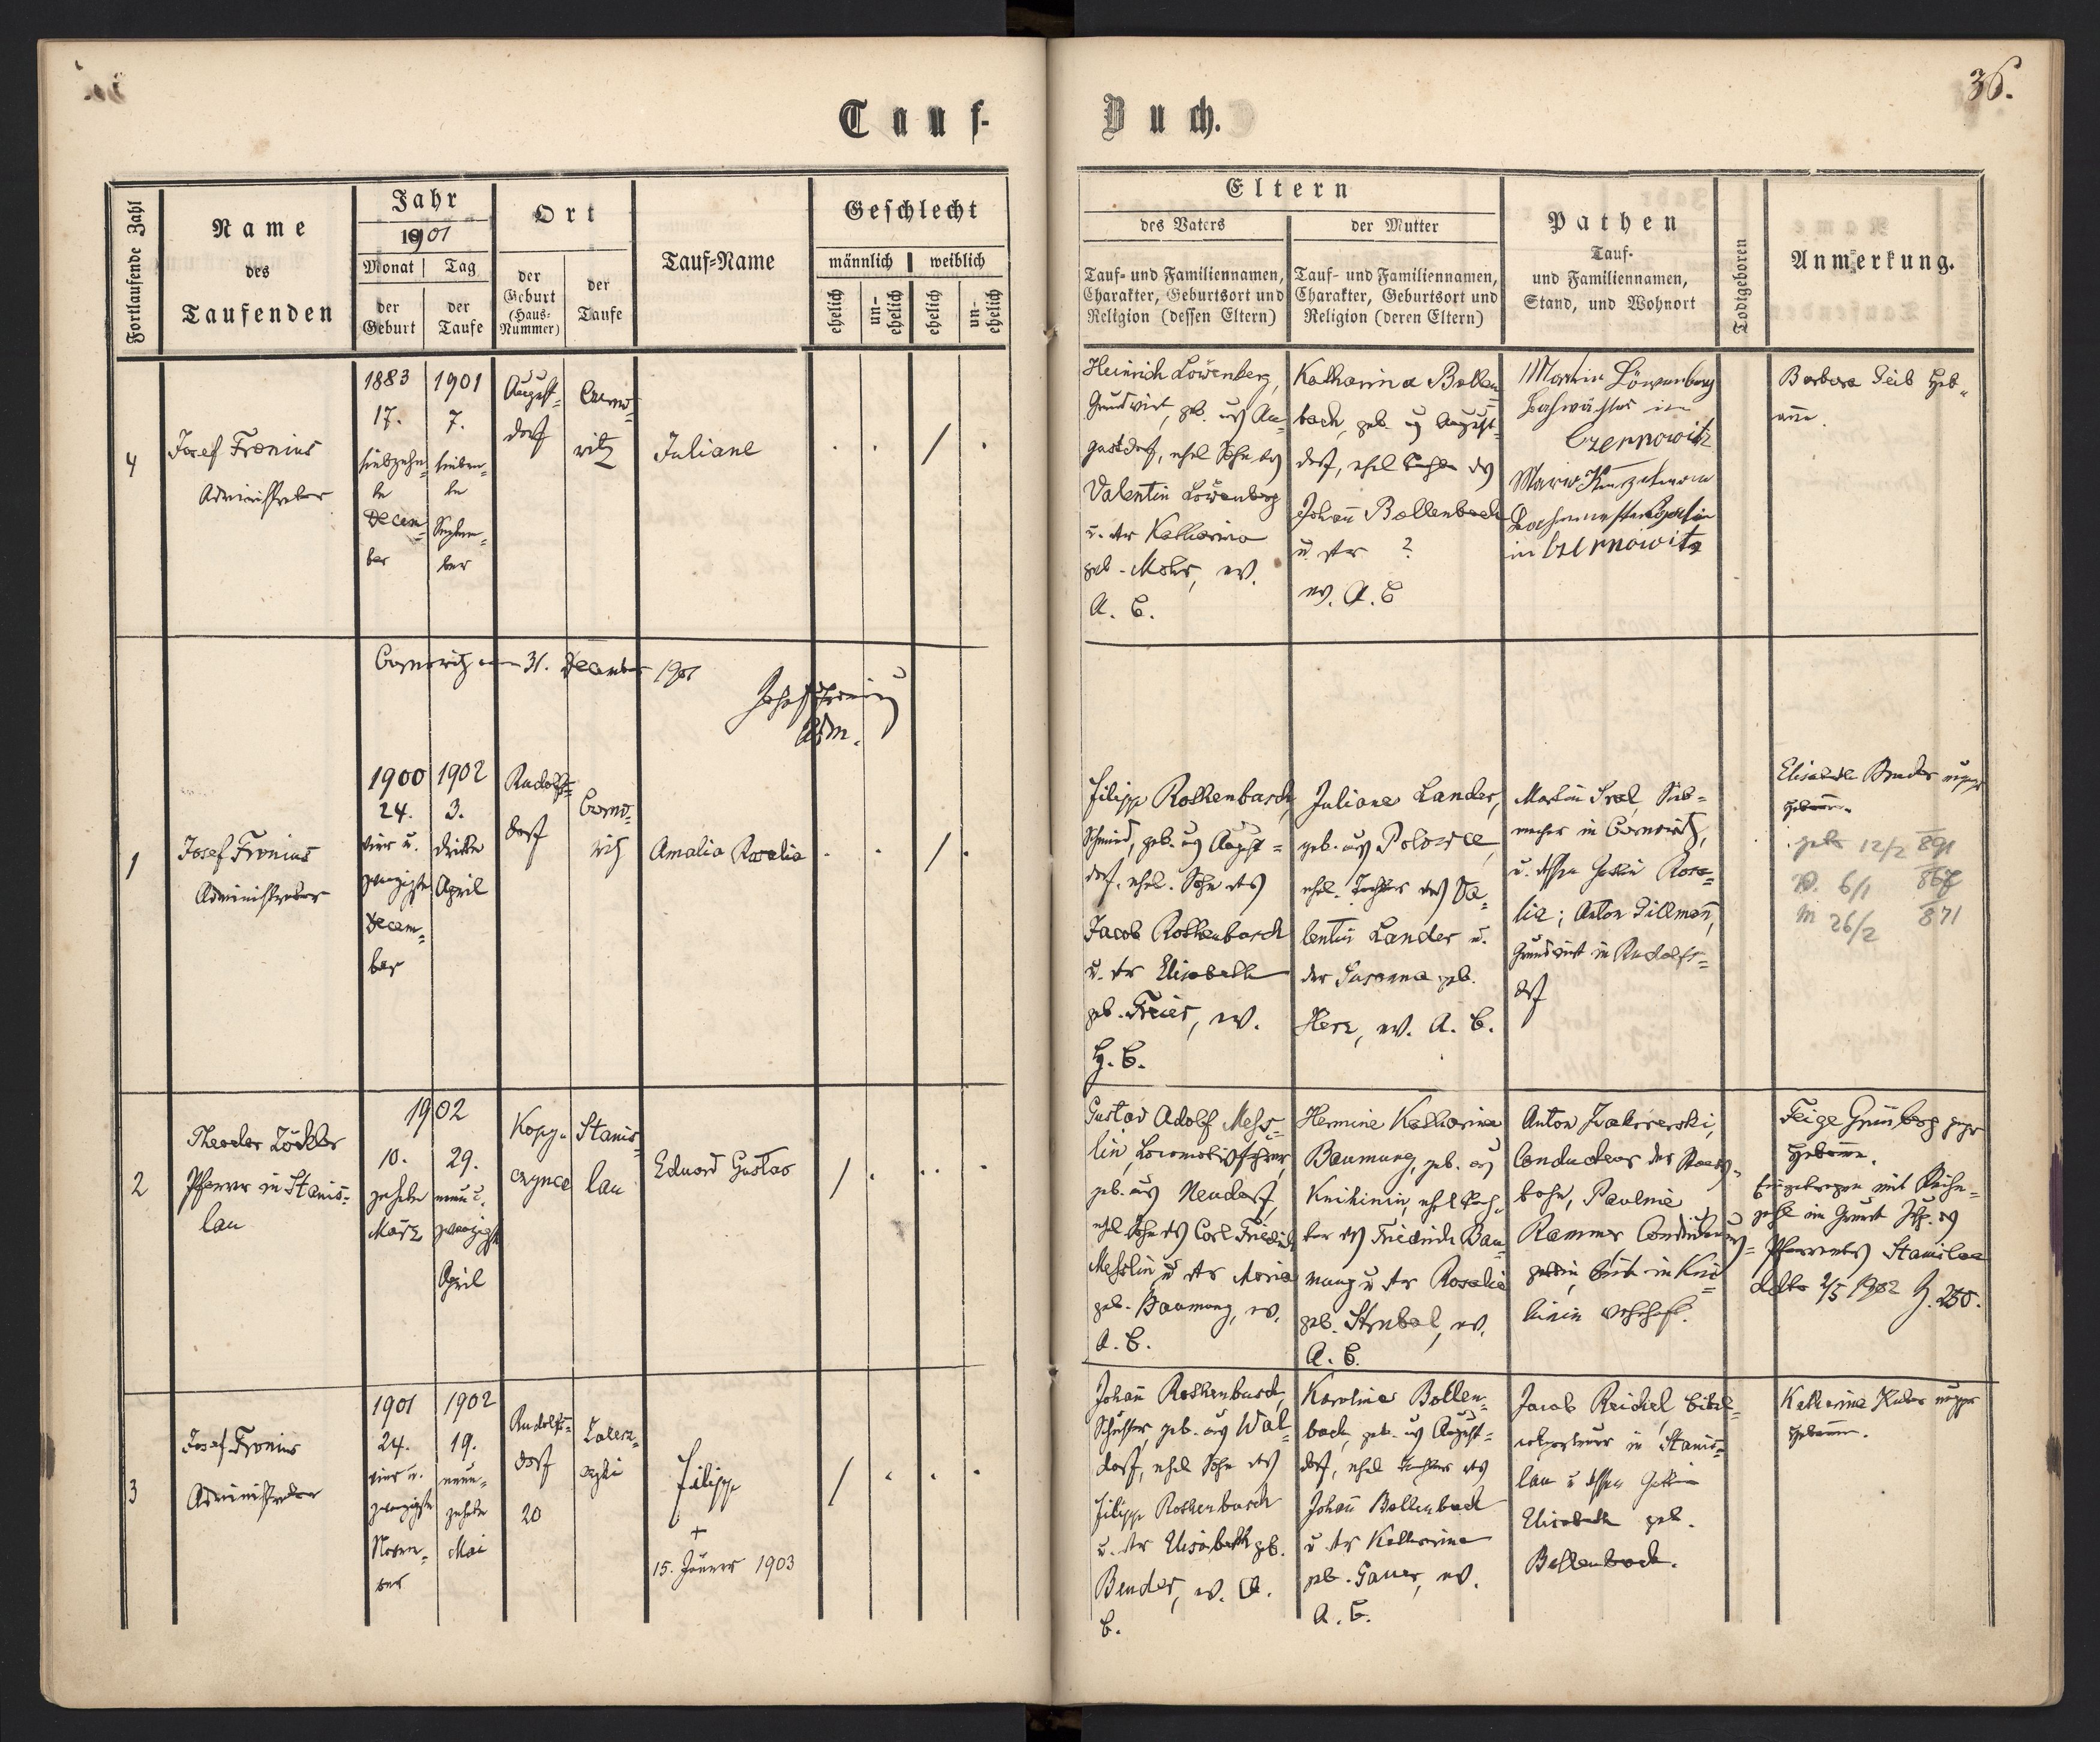 36.
Tauf-
Buch.
Fortlaufende Zahl
Name
des
Taufenden
Jahr
1901
Monat
Tag
der
Geburt
der
Taufe
Ort
der
Geburt
(Haus-
Nummer)
der
Taufe
Tauf-Name
Geschlecht
männlich
weiblich
ehelich
un-
ehelich
ehelich
un-
ehelich
Eltern
des Vaters
der Mutter
Tauf- und Familiennamen,
Charakter, Geburtsort und
Religion (dessen Eltern)
Tauf- und Familiennamen,
Charakter, Geburtsort und
Religion (deren Eltern)
Pathen
Tauf-
und Familiennamen,
Stand, und Wohnort
Todtgeboren
Anmerkung.
4
Josef Fronius
Administrator
1883
17.
siebzehn-
te
Decem-
ber
1901
7.
sieben-
te
Septem-
ber
August-
dorf
Czerno-
witz
Juliane
Heinrich Löwenberg,
Grundwirt, geb. aus Au-
gustdorf, ehel Sohn des
Valentin Löwenberg
u. der Katharina
geb. Mohr, ev.
A. C.
Katharina Bollen-
bach, geb. aus August-
dorf, ehel Tochter des
Johann Bollenbach
u der ?
ev. A. C
Martin Löwenberg
in
Czernowitz
Maria
in Czernowitz
Barbara Heb-
amme.
Czernowitz am 31. December 1901
Josef Fronius
Adm.
1
Josef Fronius
Administrator
1900
24.
vier u.
zwanzigste
Decem-
ber
1902
3.
dritte
April
Rudolfs-
dorf
Czerno-
witz
Amalia Rosalia
Filipp Rothenbusch,
Schmied, geb. aus August-
dorf, ehel. Sohn des
Jacob Rothenbusch
u. der Elisabeth
geb. Freier, ev.
H. C.
Juliane Lander,
geb. aus Polowce,
ehel. Tochter des Va-
lentin Lander u.
der Susanna geb.
Herz, ev. A. C.
Martin Sieb-
macher in Czernowitz,
u. dessen Gattin Rosa-
lia; Anton Tillmann,
Grundwirt in Rudolfs-
dorf
Elisabeth Bender
Hebamme.
geb 12/2 891
V. 6/1 868
M 26/2 871
2
Theodor Zöckler
Pfarrer in Stanis-
lau
1902
10.
zehnte
März
29.
neun u.
zwanzigste
April
Kopy-
czynce
Stanis-
lau
Eduard Gustav
Gustav Adolf Mess-
lin, Locomotivführer,
geb. aus Neudorf,
ehel Sohn des Carl Friedrich
Messlin u der Maria
geb. Baumung, ev.
A. C.
Hermine Katharina
Baumung, geb. aus
Knihinin, ehel Toch-
ter des Friedrich Bau-
mung u der Rosalie
geb. Strubel, ev.
A. C.
Anton
Conducteur der Staats-
bahn, Pauline
Rammer Conducteurs-
gattin, beide in Kni-
hinin wohnhaft.
Feige Grünberg gepr
Hebamme.
Eingetragen mit Reihe-
zahl im Grund des
Pfarramtes Stanislau
ddto 2/5 1902 Z. 250.
3
Josef Fronius
Administrator
1901
24.
vier u.
zwanzigste
Novem-
ber
1902
19.
neun-
zehnte
Mai
Rudolfs-
dorf
20
Zalesz-
czyki
Filipp
+
15. Jänner 1903
Johann Rothenbusch,
Schuster geb. aus Wal-
dorf, ehel Sohn des
Filipp Rothenbusch
u. der Elisabeth geb.
Bender, ev. A.
C.
Karoline Bollen-
bach, geb. aus August-
dorf, ehel Tochter des
Johann Bollenbach
u der Katharina
geb. Sauer, ev.
A. C.
Jacob Reichel, Bibel-
colporteur in Stanis-
lau u dessen Gattin
Elisabeth geb.
Bollenbach.
Katharina Huber
Hebamme.